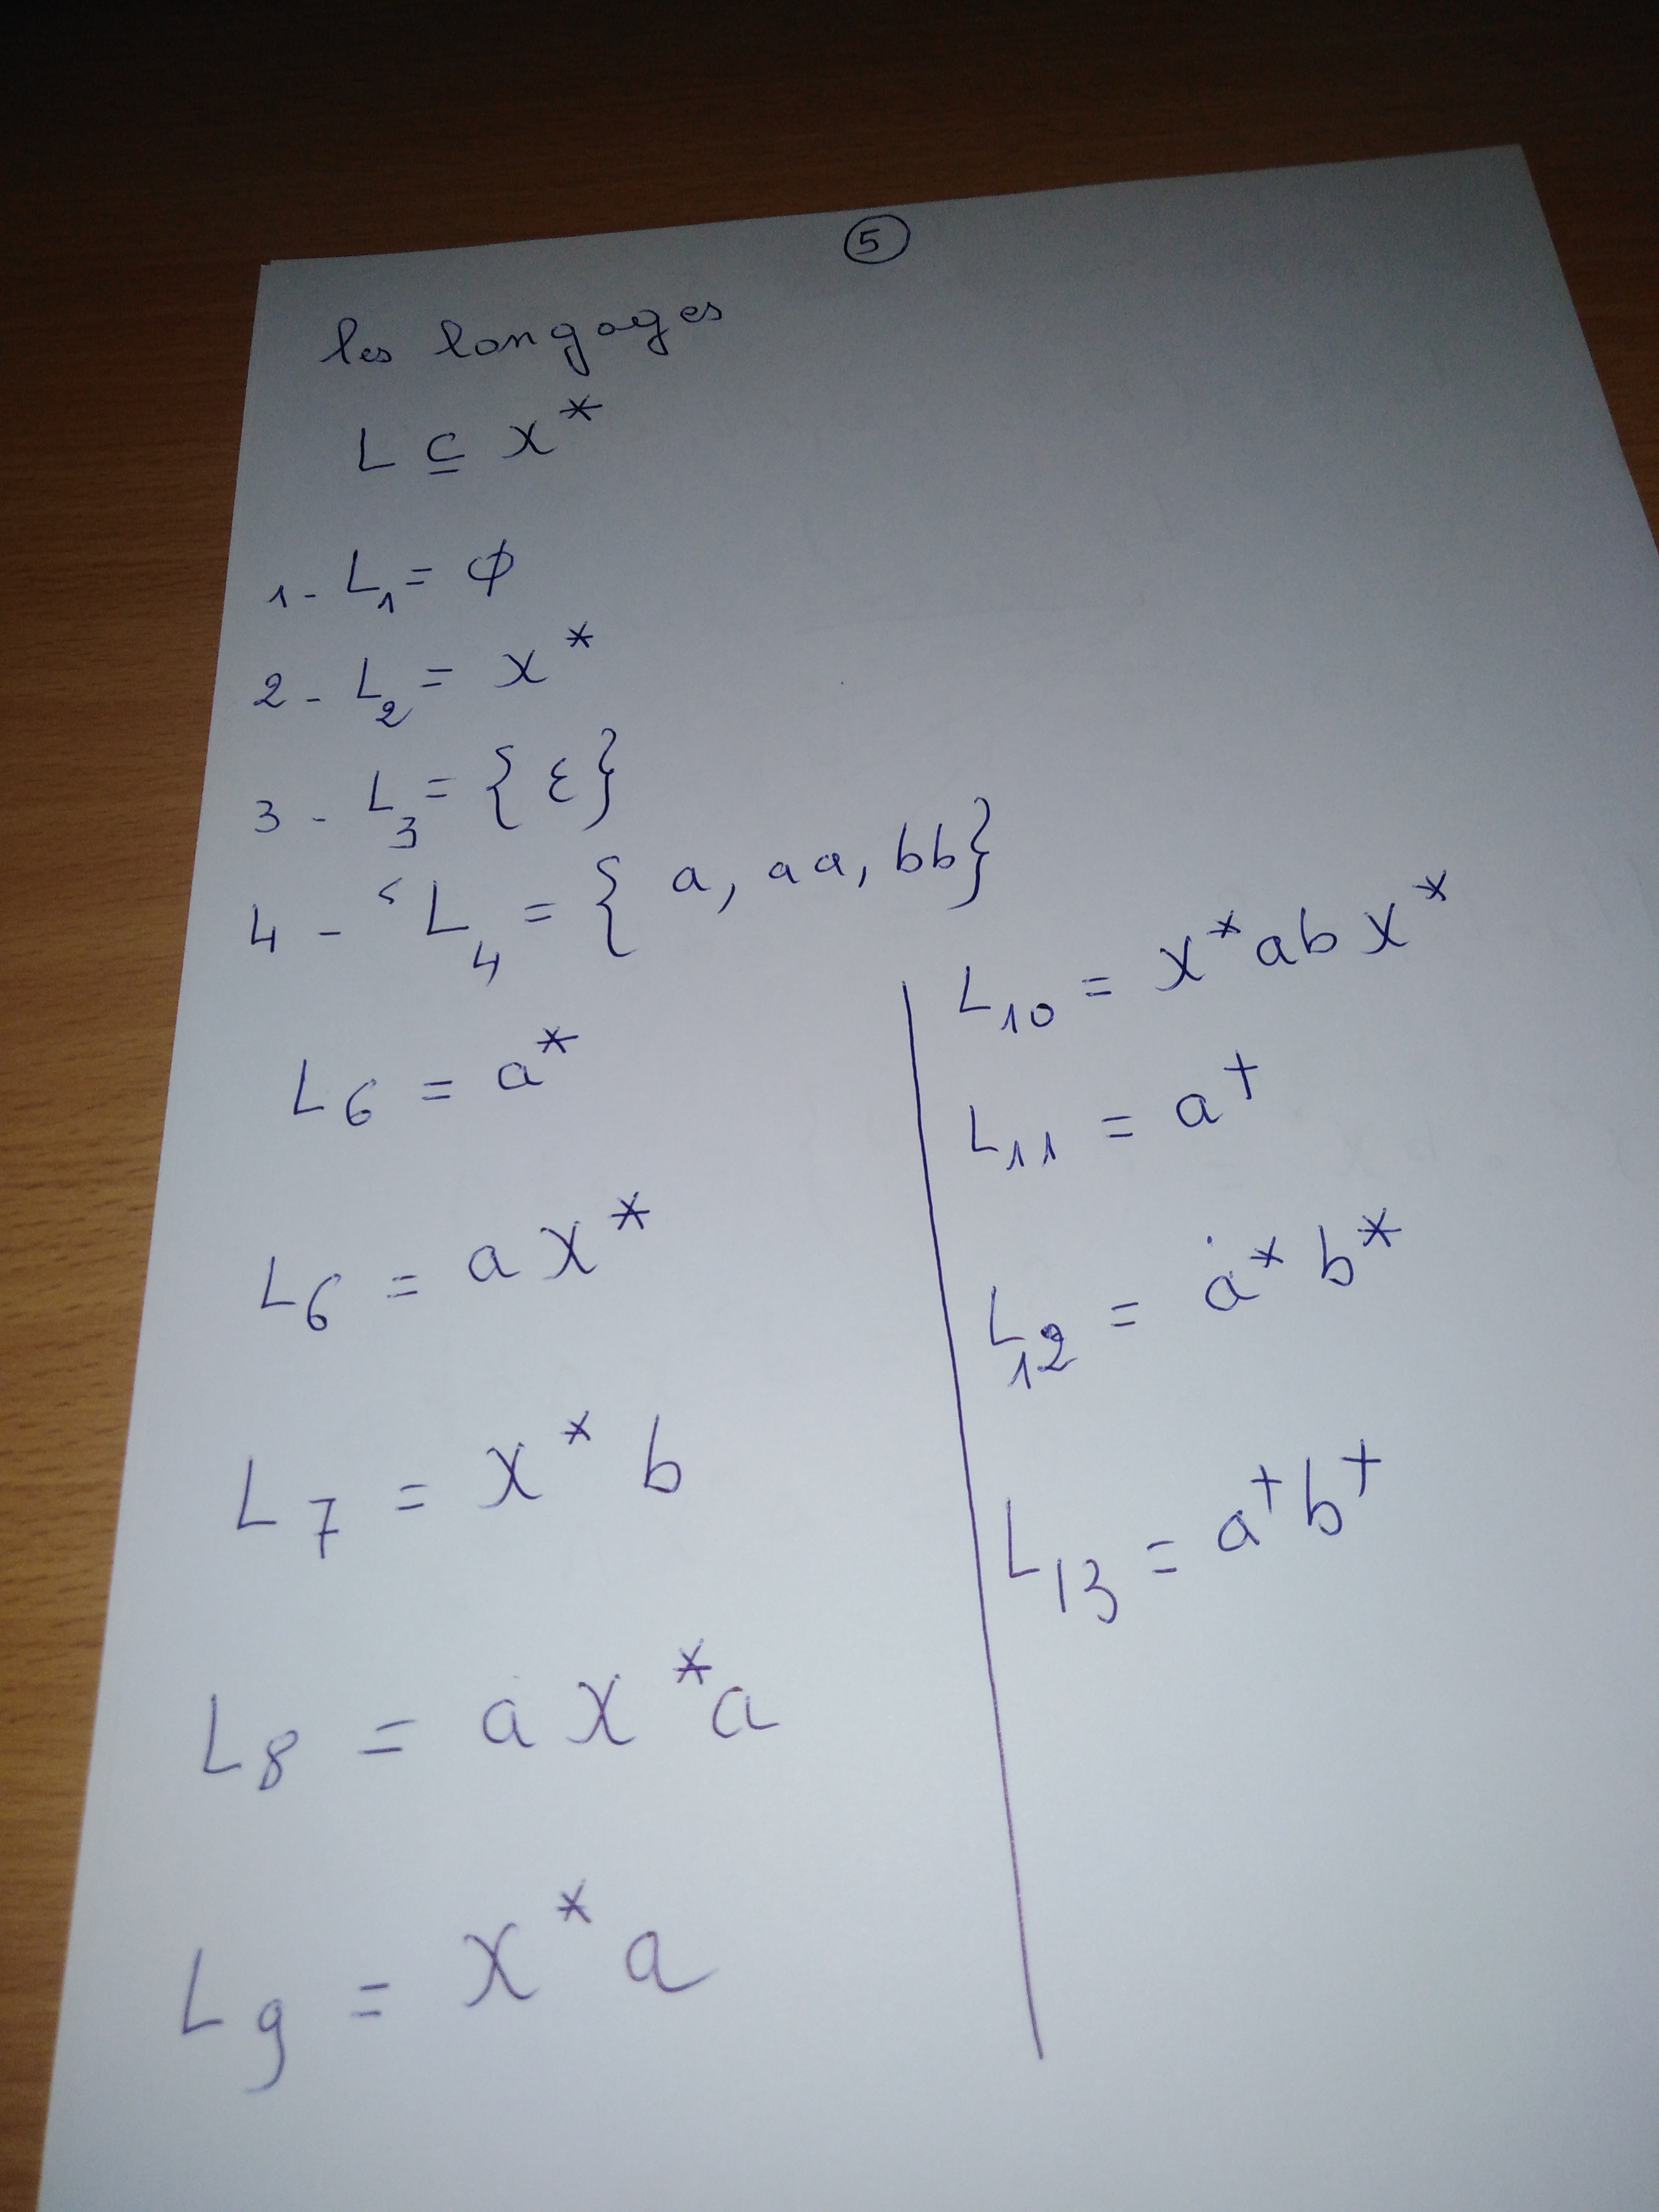 5
les langages
L ⊆ X*
1 - L₁ = ϕ
2 - L₂ = X*
3 - L₃ = { ε }
4 - L₄ = { a, aa, bb}
L₆ = a*
L₆ = a X*
L₇ = X* b
L₈ = a X* a
L₉ = X* a
L₁₀ = X* ab X*
L₁₁ = a⁺
L₁₂ = a* b*
L₁₃ = a⁺ b⁺